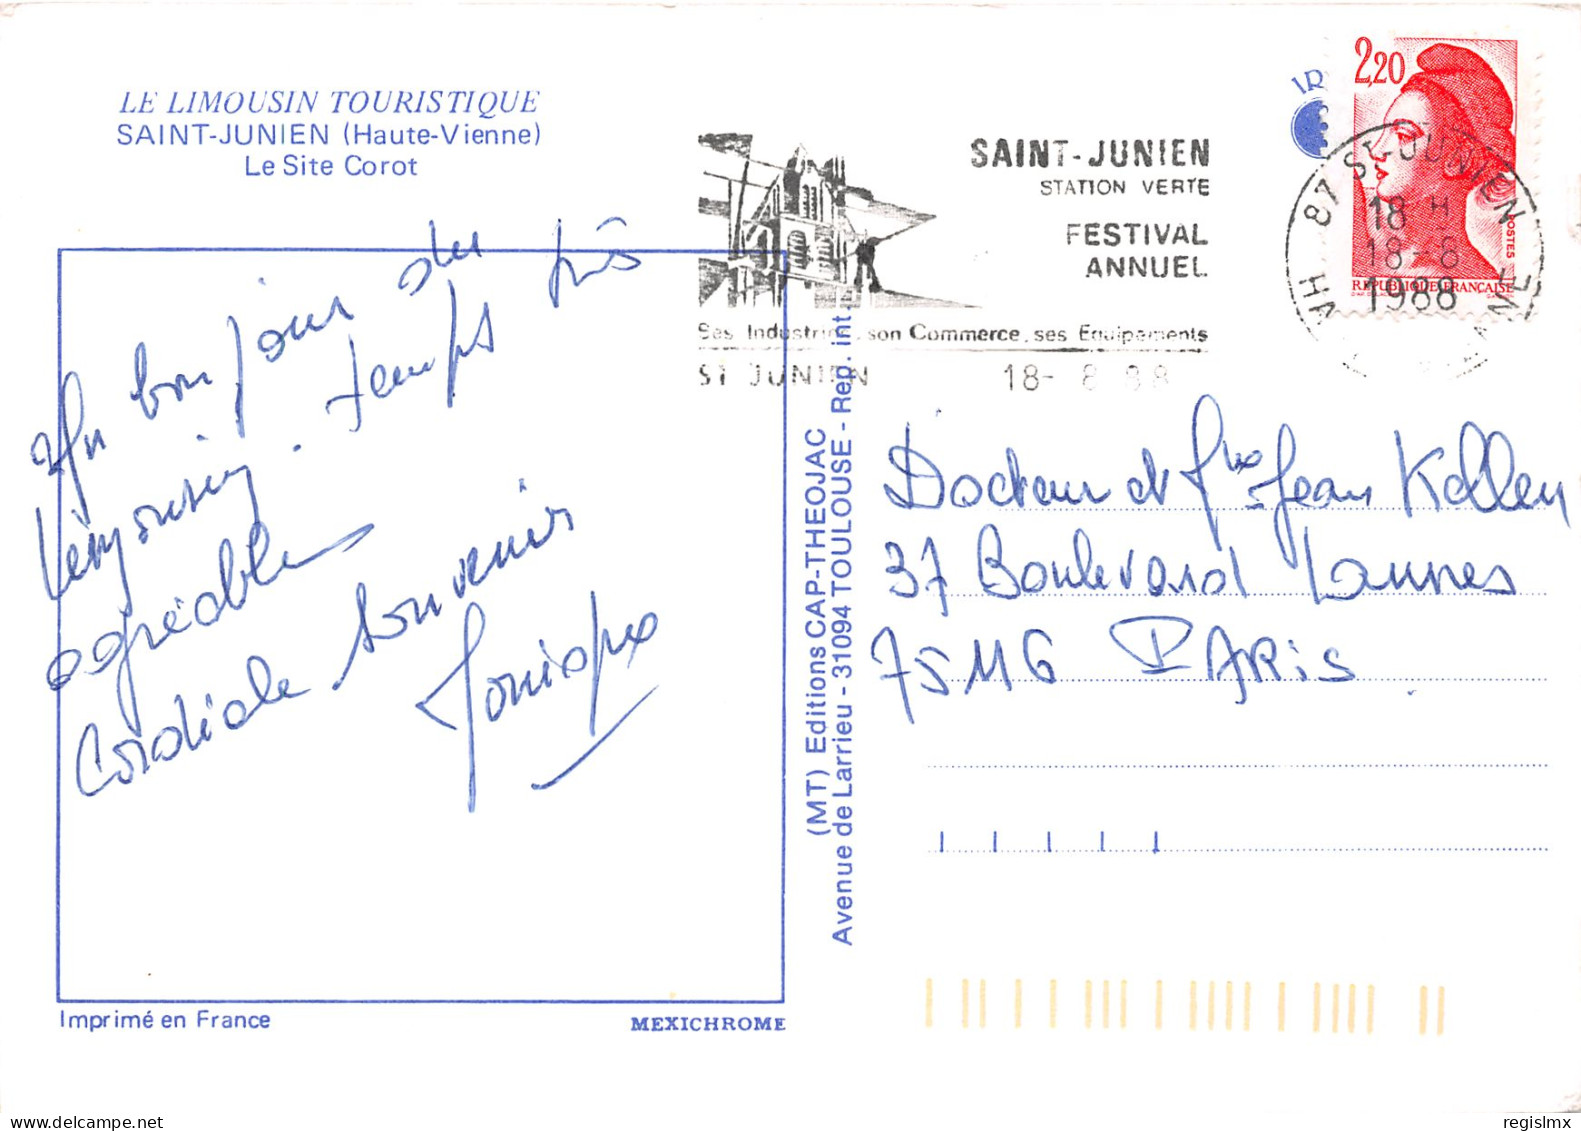 LE LIMOUSIN TOURISTIQUE
SAINT-JUNIEN (Haute-Vienne)
Le Site Corot
Un bonjour du
Limousin. temps très
agréable
Cordiale souvenir
SAINT-JUNIEN
STATION VERTE
FESTIVAL
ANNUEL
Ses Industries, son Commerce, ses Equipements
ST JUNIEN 18- 8 88
2,20
POSTES
REPUBLIQUE FRANÇAISE
87 ST-JUNIEN
18 H
18-8
1988
HAUTE VIENNE
Docteur et Jean
37 Boulevard Lannes
75116 PARIS
(MT) Editions CAP-THEOJAC
Avenue de Larrieu - 31094 TOULOUSE - Rep. int.
Imprimé en France
MEXICHROME
regislmx